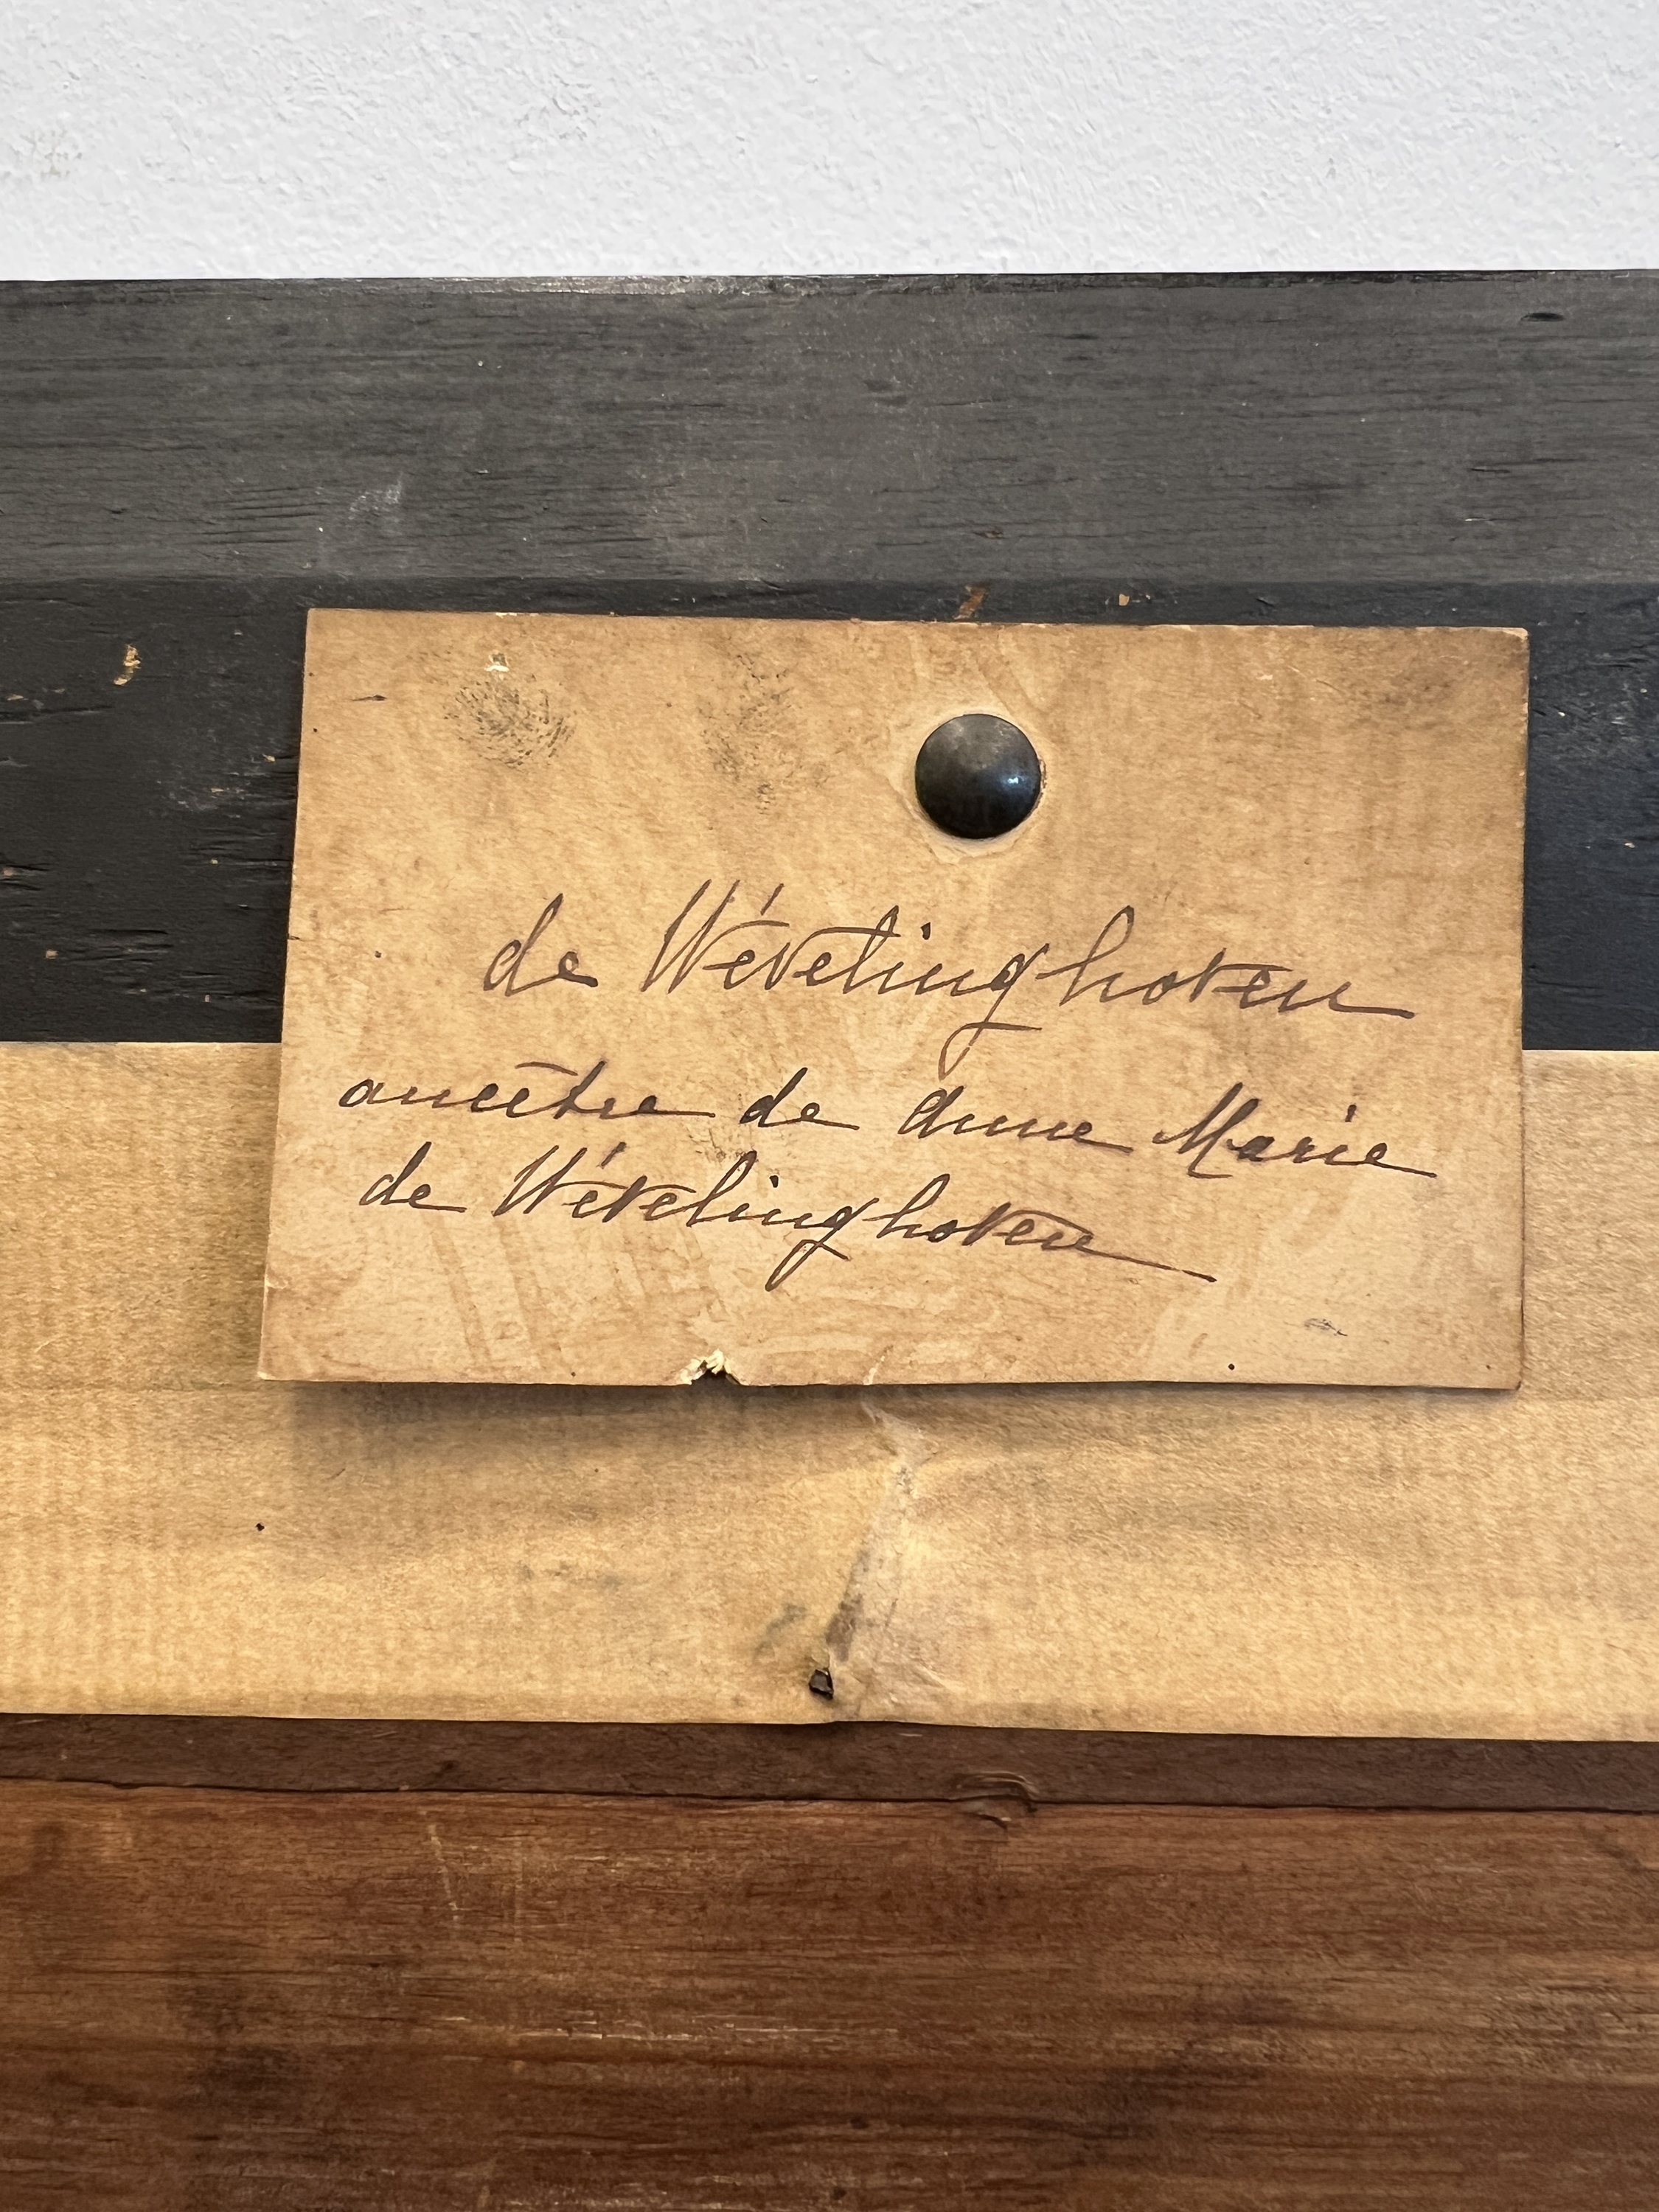 de Wévelinghoven
ancêtre de Anne Marie
de Wévelinghoven